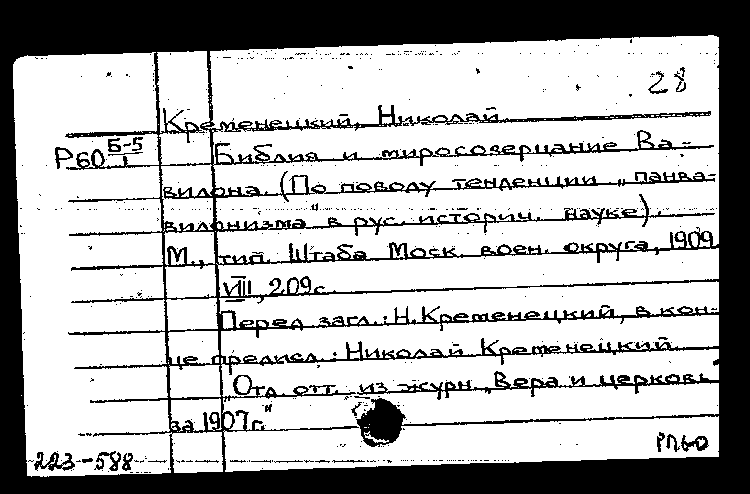 28
Кременецкий, Николай
Р60 Б-5/1 Библия и миросозерцание Ва-
вилона. (По поводу тенденции „панва-
вилонизма“ в рус. историч. науке).
М., тип. Штаба Моск. воен. округа, 1909
VIII, 209 с.
Перед загл.: Н. Кременецкий, в кон-
це предисл.: Николай Кременецкий
„Отд. отт. из журн. „Вера и церковь“
за 1907 г.“
223-588